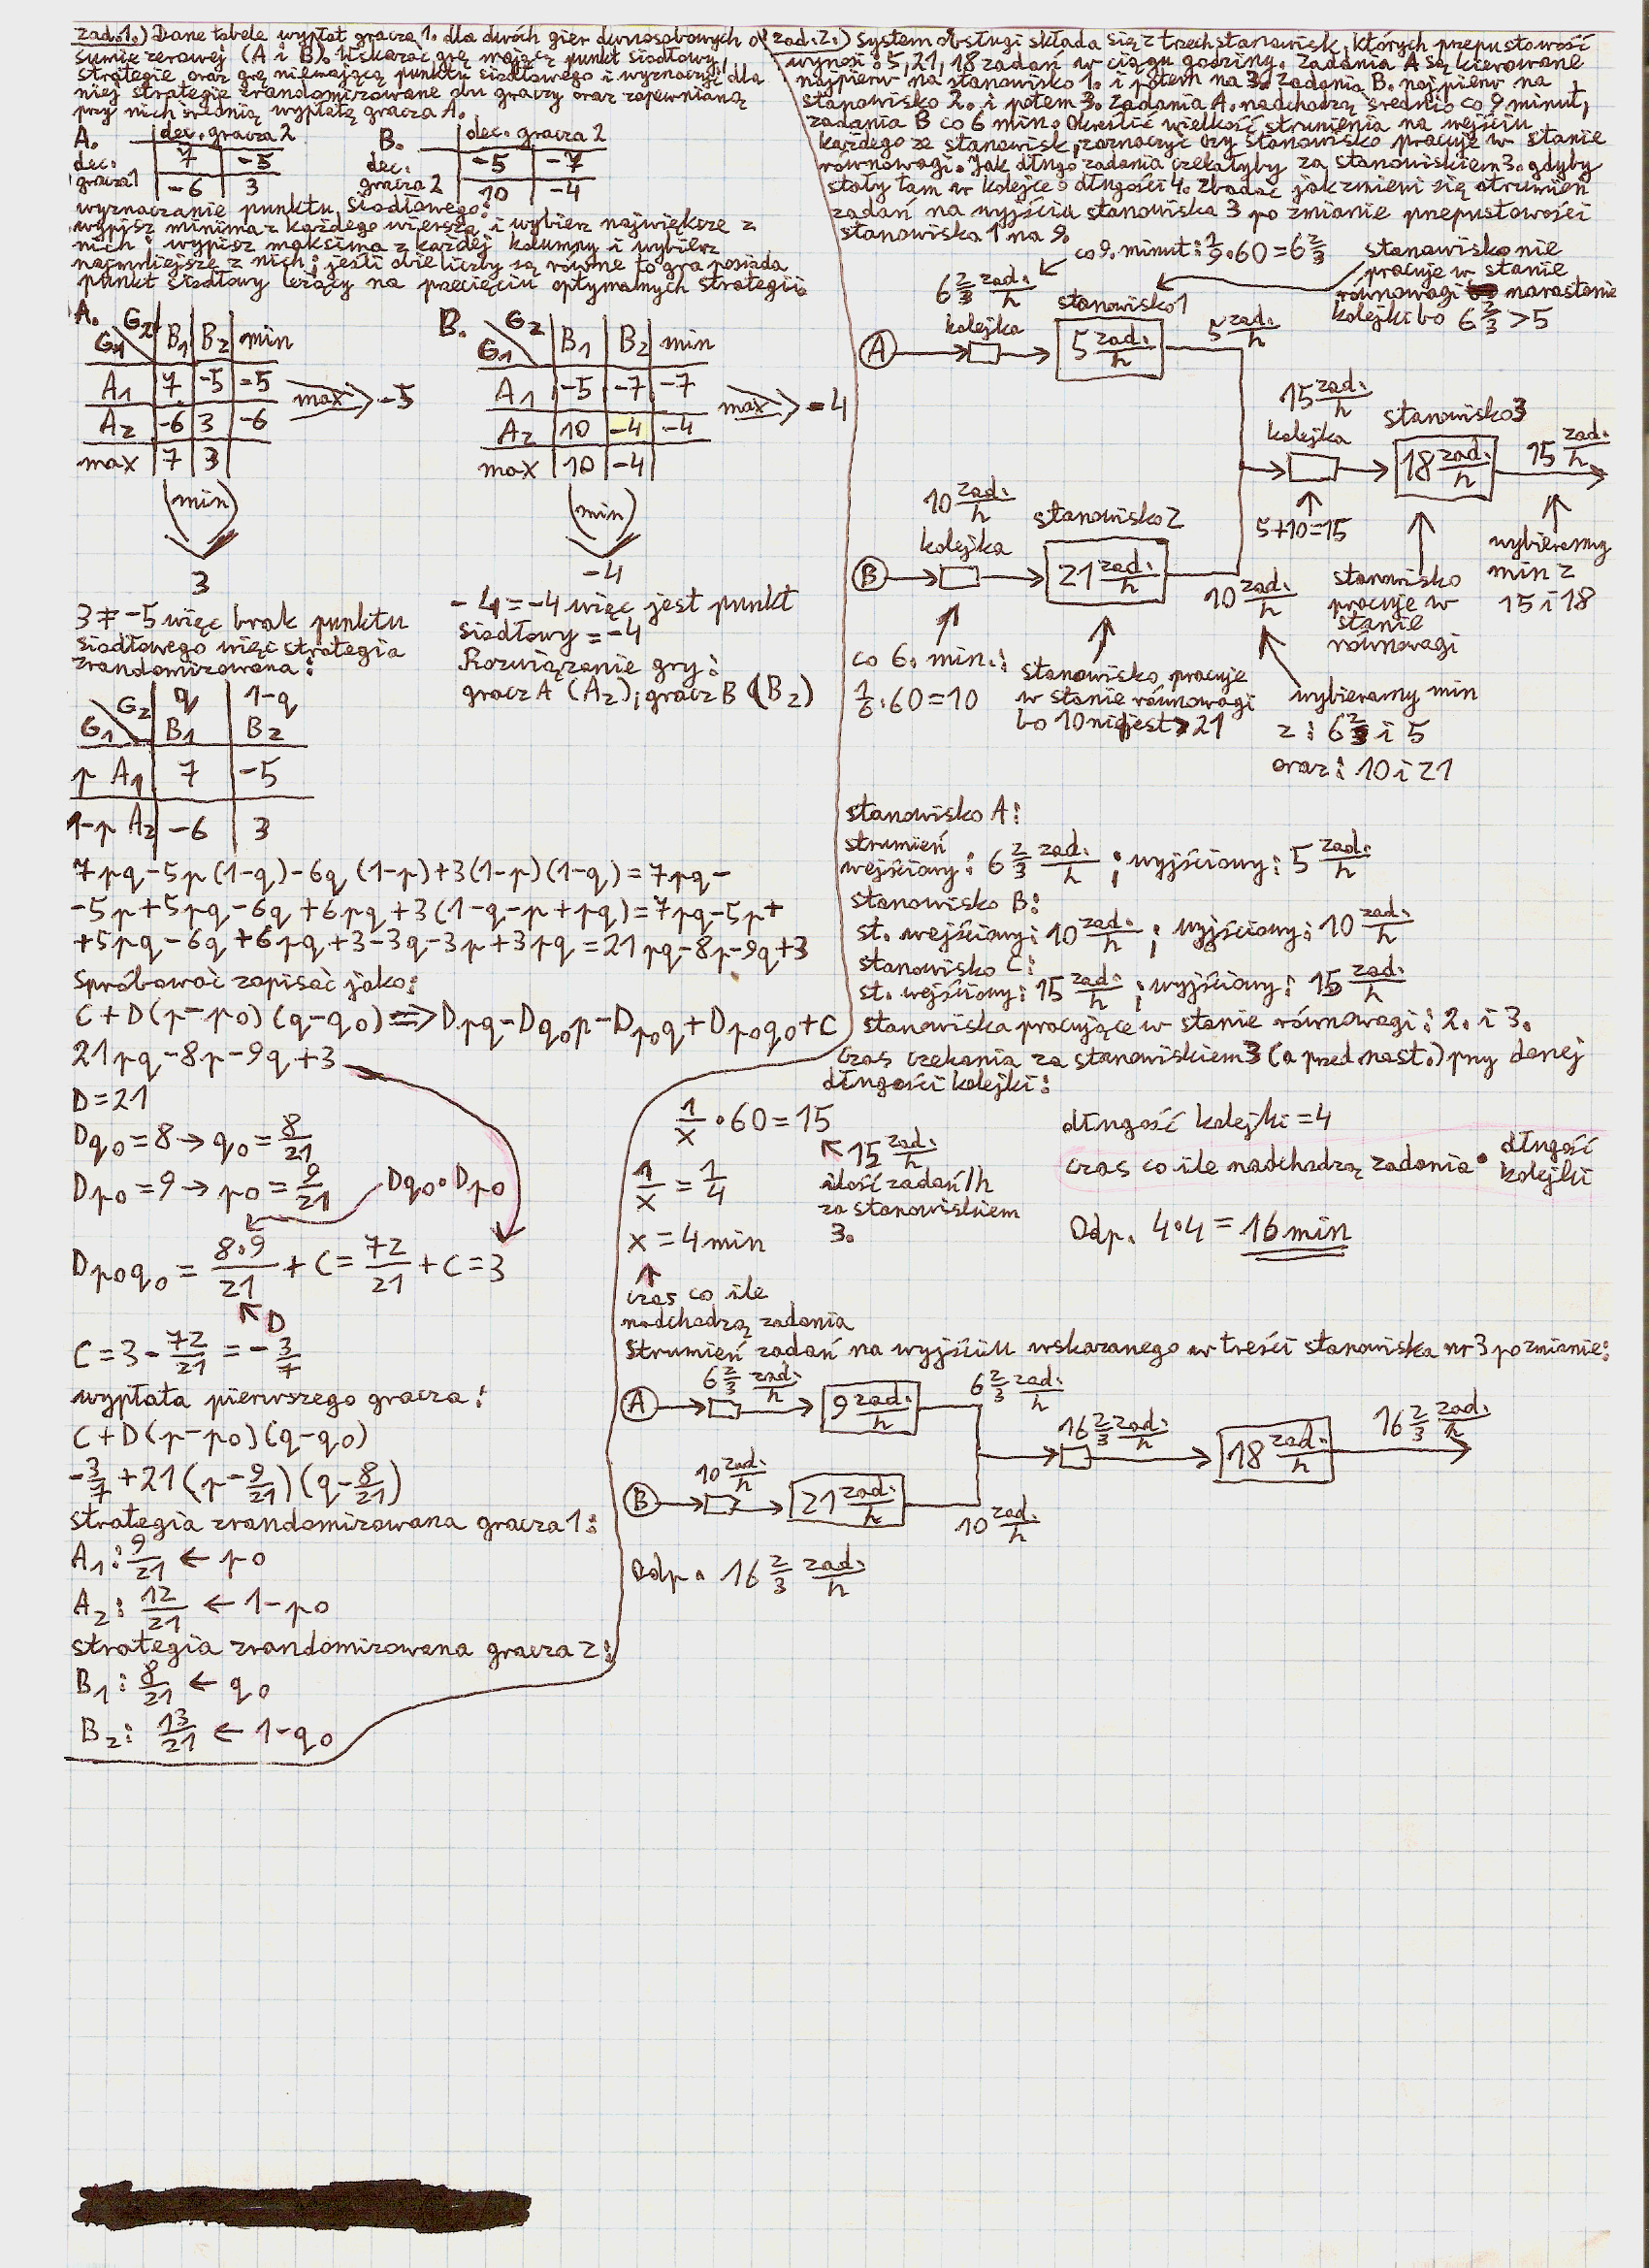 zad.1.) Dane tabele wypłat gracza 1. dla dwóch gier dwuosobowych o
sumie zerowej (A i B). Wskazać grę mającą punkt siodłowy,
strategie oraz grę niemającą punktu siodłowego i wyznaczyć dla
niej strategie zrandomizowane obu graczy oraz zapewnianą
przy nich średnią wypłatę gracza A.
A. dec. gracza 2
dec. gracza 1
7 -5
-6 3
B. dec. gracza 2
dec. gracza 2
-5 -7
10 -4
wyznaczanie punktu siodłowego:
wypisz minima z każdego wiersza i wybierz największe z
nich; wypisz maksima z każdej kolumny i wybierz
najmniejsze z nich; jeśli obie liczby są równe to gra posiada
punkt siodłowy leżący na przecięciu optymalnych strategii.
A.
G2 G1 B1 B2 min
A1 7 -5 -5
A2 -6 3 -6
max 7 3
max -5
(min)
3
3 ≠ -5 więc brak punktu
siodłowego więc strategia
zrandomizowana:
B.
G2 G1 B1 B2 min
A1 -5 -7 -7
A2 10 -4 -4
max 10 -4
max -4
(min)
-4
-4 = -4 więc jest punkt
siodłowy = -4
Rozwiązanie gry:
gracz A (A2); gracz B (B2)
q 1-q
G2 G1 B1 B2
p A1 7 -5
1-p A2 -6 3
7pq-5p(1-q)-6q(1-p)+3(1-p)(1-q)=7pq-
-5p+5pq-6q+6pq+3(1-q-p+pq)=7pq-5p+
+5pq-6q+6pq+3-3q-3p+3pq=21pq-8p-9q+3
Spróbować zapisać jako:
C+D(p-p0)(q-q0) => Dpq-Dq0p-Dp0q+Dp0q0+C
21pq-8p-9q+3
D=21
Dq0=8 → q0=8/21
Dp0=9 → p0=9/21
Dq0·Dp0
Dp0q0 = 8·9/21 + C = 72/21 + C = 3
D
C = 3 - 72/21 = -3/7
wypłata pierwszego gracza:
C+D(p-p0)(q-q0)
-3/7+21(p-9/21)(q-8/21)
strategia zrandomizowana gracza 1:
A1: 9/21 ← p0
A2: 12/21 ← 1-p0
strategia zrandomizowana gracza 2:
B1: 8/21 ← q0
B2: 13/21 ← 1-q0
zad.2.) System obsługi składa się z trzech stanowisk, których przepustowość
wynosi: 5, 21, 18 zadań w ciągu godziny. Zadania A są kierowane
najpierw na stanowisko 1. i potem na 3. zadania B. najpierw na
stanowisko 2. i potem 3. Zadania A. nadchodzą średnio co 9 minut,
zadania B co 6 min. Określić wielkość strumienia na wejściu
każdego ze stanowisk, zaznaczyć czy stanowisko pracuje w stanie
równowagi. Jak długo zadania czekałyby za stanowiskiem 3. gdyby
stały tam w kolejce o długości 4. Zbadać jak zmieni się strumień
zadań na wyjściu stanowiska 3 po zmianie przepustowości
stanowiska 1 na 9.
co 9. minut: 1/9·60=6 2/3
stanowisko nie
pracuje w stanie
równowagi narastanie
kolejki bo 6 2/3 > 5
6 2/3 zad./h
kolejka
stanowisko 1
A
5 zad./h
5 zad./h
15 zad./h
kolejka
stanowisko 3
18 zad./h
15 zad./h
10 zad./h
kolejka
stanowisko 2
B
21 zad./h
10 zad./h
5+10=15
stanowisko
pracuje w
stanie
równowagi
wybieramy
min z
15 i 18
co 6. min.:
1/6·60=10
stanowisko pracuje
w stanie równowagi
bo 10 nie jest > 21
wybieramy min
z: 6 2/3 i 5
oraz: 10 i 21
stanowisko A:
strumień
wejściowy: 6 2/3 zad./h ; wyjściowy: 5 zad./h
stanowisko B:
st. wejściowy: 10 zad./h ; wyjściowy: 10 zad./h
stanowisko C:
st. wejściowy: 15 zad./h ; wyjściowy: 15 zad./h
stanowiska pracujące w stanie równowagi: 2. i 3.
czas czekania za stanowiskiem 3 (a przed nast.) przy danej
długości kolejki:
1/x·60=15
15 zad./h
ilość zadań/h
za stanowiskiem
3.
1/x=1/4
x=4min
czas co ile
nadchodzą zadania
długość kolejki=4
czas co ile nadchodzą zadania · długość kolejki
Odp. 4·4=16min
Strumień zadań na wyjściu wskazanego w treści stanowiska nr 3 po zmianie:
A
6 2/3 zad./h
9 zad./h
6 2/3 zad./h
16 2/3 zad./h
18 zad./h
16 2/3 zad./h
B
10 zad./h
21 zad./h
10 zad./h
Odp. 16 2/3 zad./h